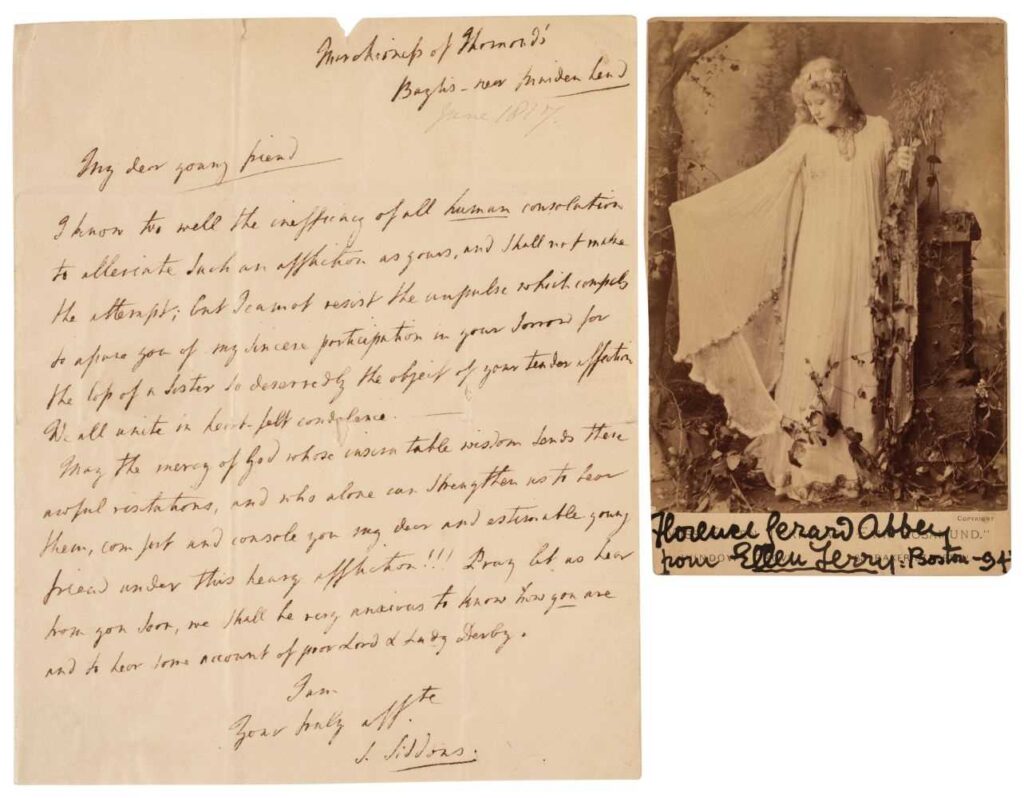 Marchioness of Thomond's
Baylis - near Maiden head
June 1817.
My dear young friend
I know too well the inefficacy of all human consolation
to alleviate such an affliction as yours, and shall not make
the attempt; but I cannot resist the impulse which compels
to assure you of my sincere participation in your sorrow for
the loss of a Sister so deservedly the object of your tender affection
We all unite in heart-felt condolence.
May the mercy of God whose inscrutable wisdom sends these
awful visitations, and who alone can strengthen us to bear
them, comfort and console you my dear and estimable young
friend under this heavy affliction!!! Pray let us hear
from you soon, we shall be very anxious to know how you are
and to hear some account of poor Lord & Lady Derby.
I am
Your truly affte
S. Siddons.
COPYRIGHT
Florence Gerard Abbey
from Ellen Terry. Boston - 94